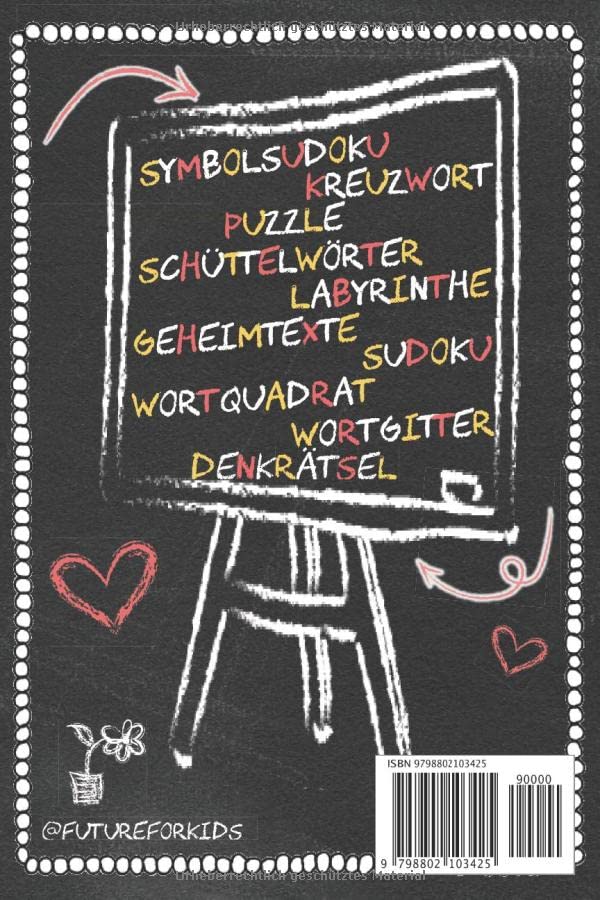 Urheberrechtlich geschütztes Material
SYMBOLSUDOKU
KREUZWORT
PUZZLE
SCHÜTTELWÖRTER
LABYRINTHE
GEHEIMTEXTE
SUDOKU
WORTQUADRAT
WORTGITTER
DENKRÄTSEL
@FUTUREFORKIDS
ISBN 9798802103425
90000
9 798802 103425
Urheberrechtlich geschütztes Material